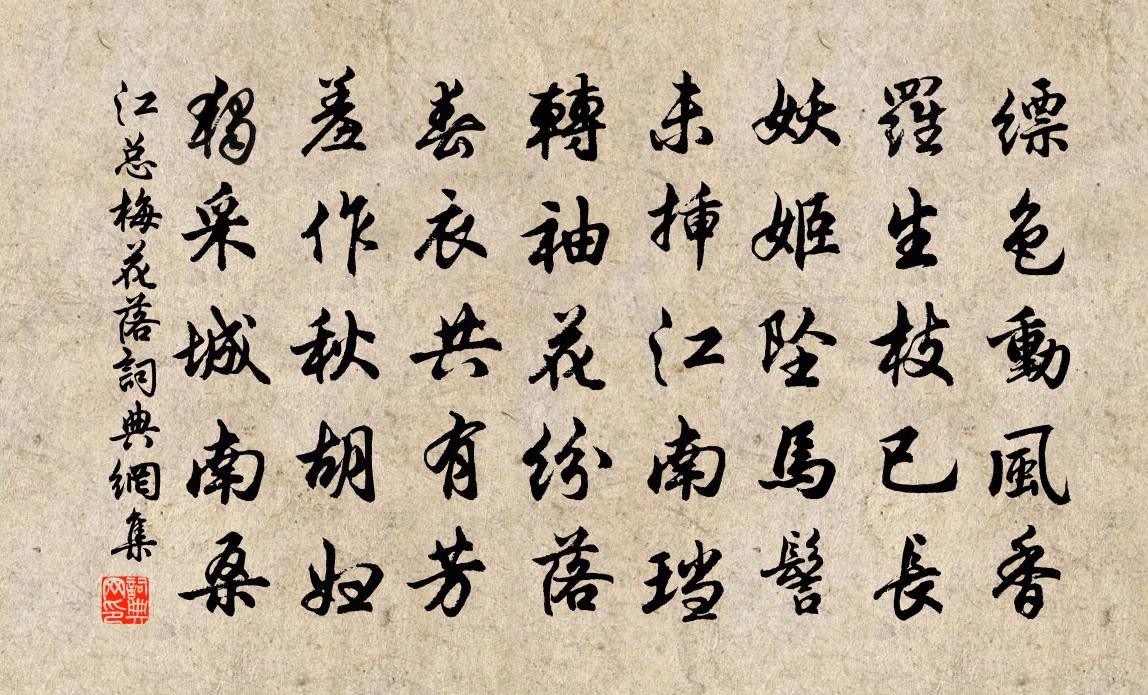 縹色動風香
羅生枝已長
妖姬墜馬髻
未插江南璫
轉袖花紛落
春衣共有芳
羞作秋胡婦
獨采城南桑
江总梅花落詞典網集
詞典网印